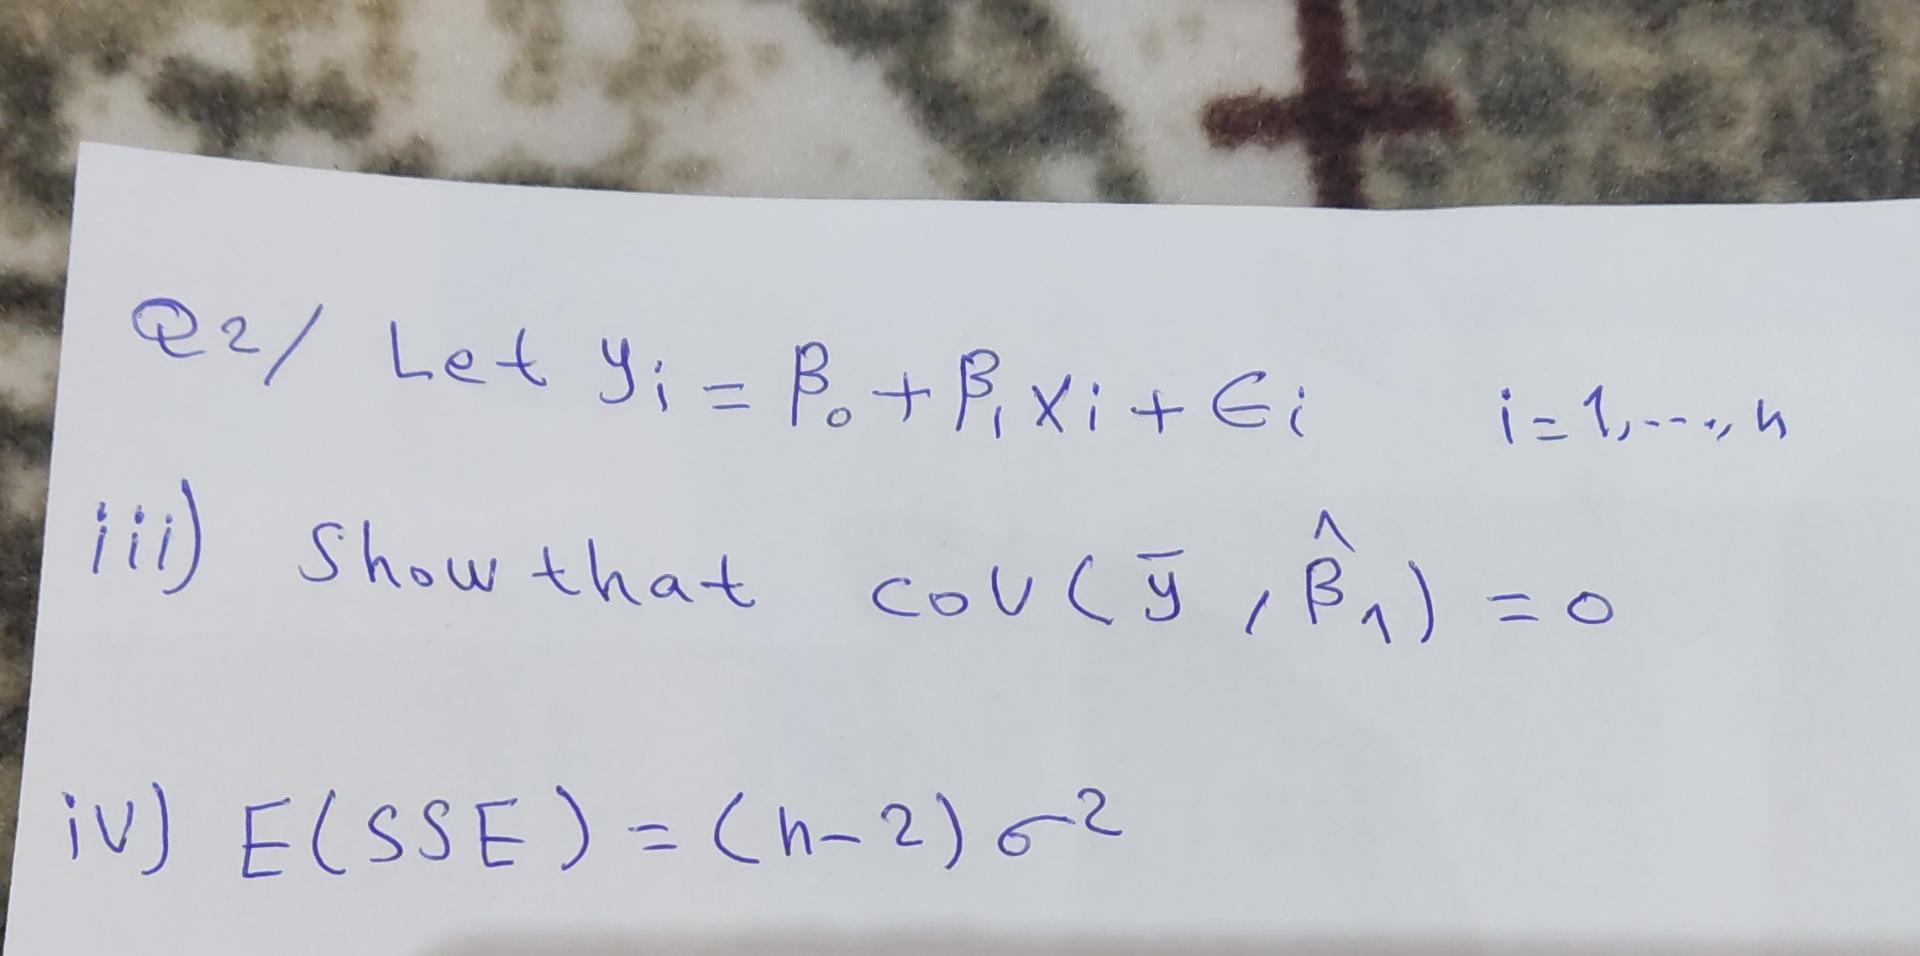 Q2/ Let yᵢ = β₀ + β₁ xᵢ + ϵᵢ i=1,...,n
iii) Show that cov(ȳ, β̂₁) = 0
iv) E(SSE) = (n-2)σ²